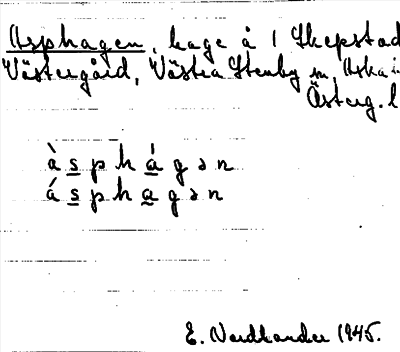 Asphagen, hage å 1 Skepstad
Västergård, Västra Stenby sn, Aska
Österg. l
àsphágən
ásphagən
E. Nordlander 1945.